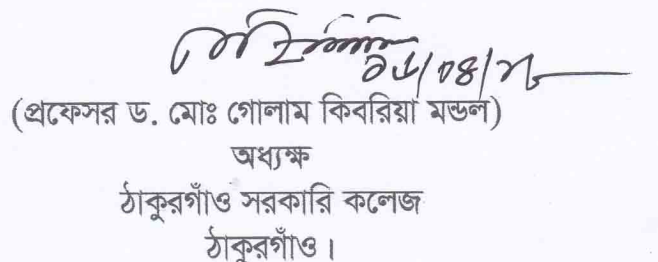 (প্রফেসর ড. মোঃ গোলাম কিবরিয়া মন্ডল)
অধ্যক্ষ
ঠাকুরগাঁও সরকারি কলেজ
ঠাকুরগাঁও।